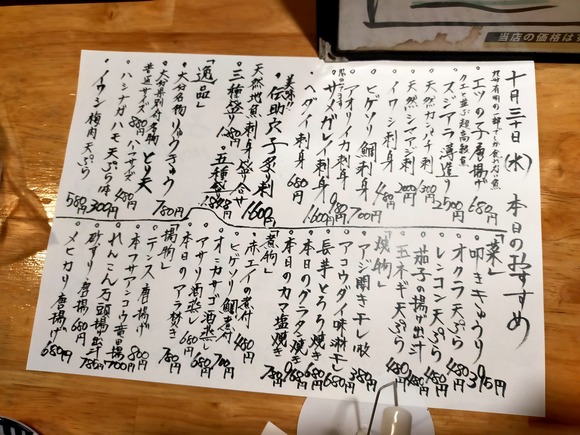 当店の価格は
十月三十日(水) 本日のおすすめ
九州有明の一部でしか食べれない魚
・エツの子唐揚げ 680円
クエと並ぶ超高級魚
・スジアラ薄造り 2500円
・天然カンパチ刺
・天然シマアジ刺
・イワシ刺身 480円
・ヒゲソリ鯛刺身 700円
・アオリイカ刺身 980円
・サメガレイ刺身 1600円
・ヘダイ刺身 680円
美味!!
・伝助穴子刺 1600円
天然地魚刺身盛合せ
・三種盛り1280円・五種盛1828円
「逸品」
・大分名物りゅうきゅう 780円
・大分県別府名物 とり天
普通サイズ 880円 ハーフサイズ 480円
・ハシナガハモ天ぷら1本 300円
・イワシ梅肉天ぷら 580円
「菜」
・叩ききゅうり 395円
・オクラ天ぷら 480円
・レンコン天ぷら 480円
・茄子の揚げ出汁 480円
・玉ネギ天ぷら 480円
「焼物」
・アジ開き干し
・アコウダイ味淋干し 680円
・長芋とろろ焼き 680円
・本日のグラタン焼き 980円
・本日のカマ塩焼き 780円
「煮物」
・赤エイの煮付 480円
・ヒゲソリ鯛煮付 700円
・オニカサゴ酒蒸し
・アサリ酒蒸し 680円
・本日のアラ炊き 780円
「揚物」
・テンス唐揚げ 800円
・本フサアンコウ竜田揚 700円
・れんこん万頭揚げ出汁 780円
・砂ずり唐揚 680円
・メヒカリ唐揚げ 680円